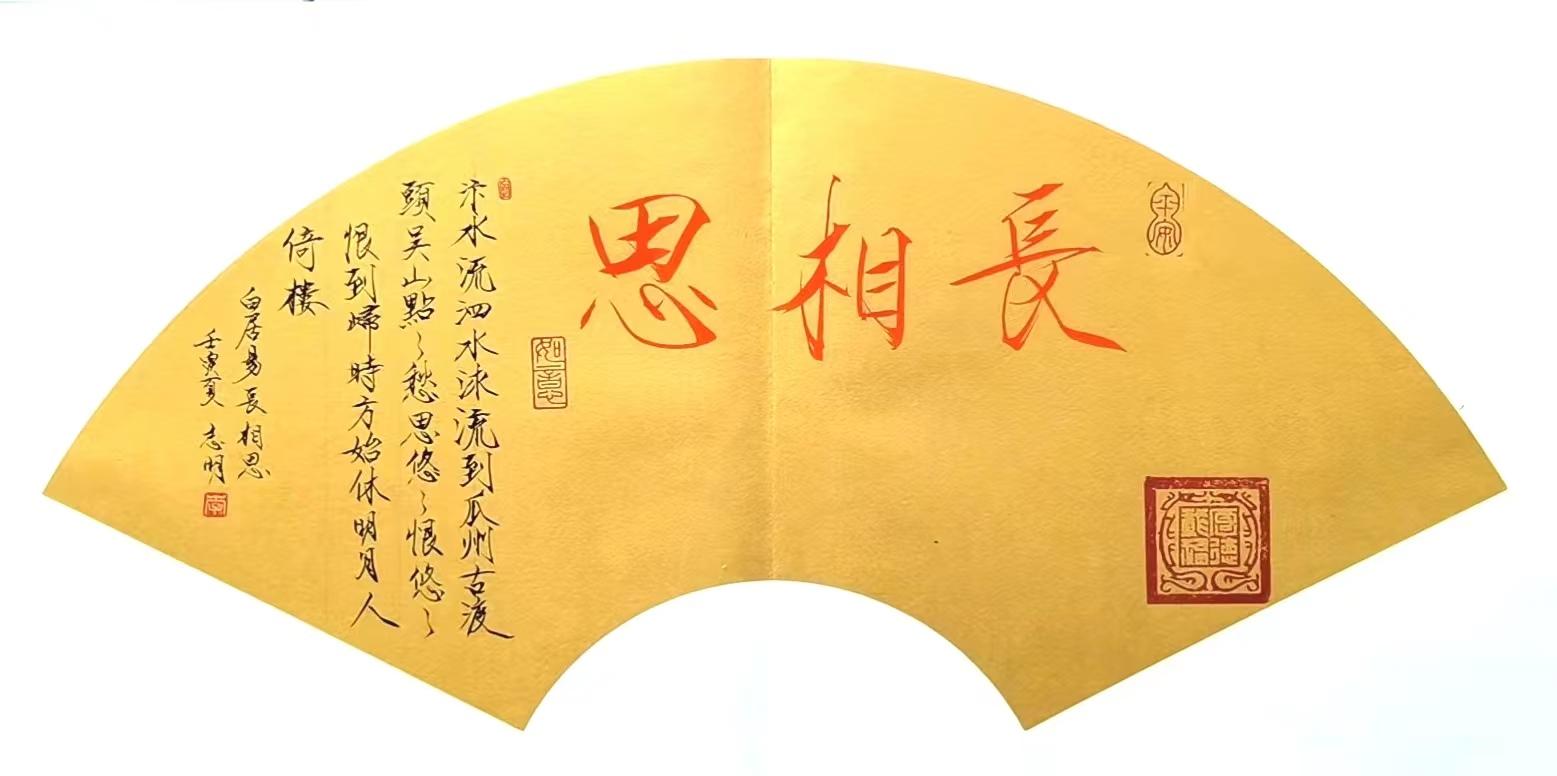 長相思
汴水流泗水流流到瓜州古渡
頭吴山點〻愁思悠〻恨悠〻
恨到歸時方始休明月人
倚樓
白居易長相思
壬寅夏 志明
如意
李